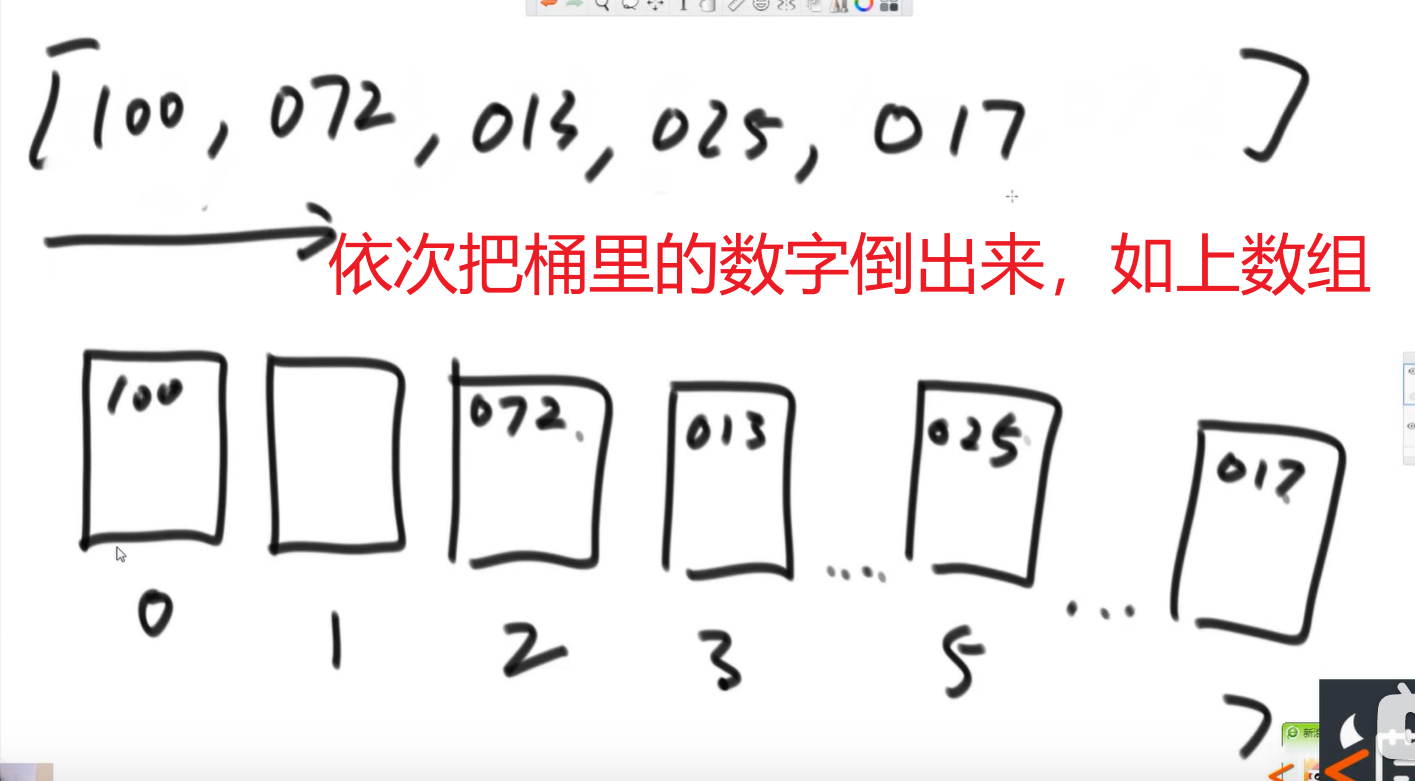 [100, 072, 013, 025, 017 ]
依次把桶里的数字倒出来，如上数组
100 072 013 025 017
0 1 2 3 5 7